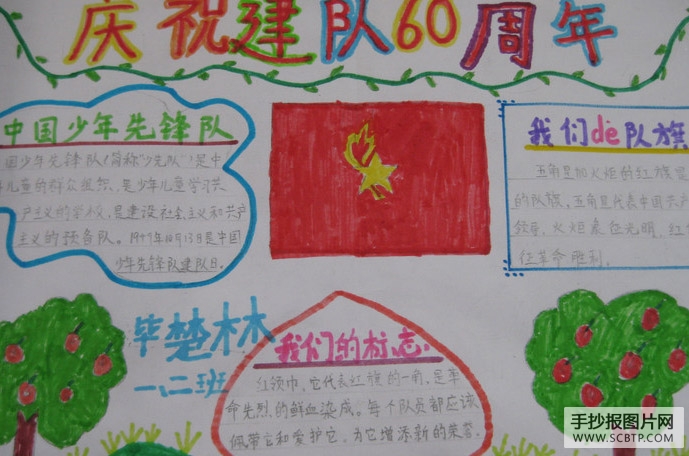 庆祝建队60周年
中国少年先锋队
国少年先锋队(简称"少先队")是中
儿童的群众组织,是少年儿童学习共
产主义的学校,是建设社会主义和共产
主义的预备队。1949年10月13日是中国
少年先锋队建队日。
我们dè队旗
五角星加火炬的红旗
的队旗,五角星代表中国共产
领导,火炬象征光明,红
征革命胜利。
毕楚林
一、二班
我们的标志
红领巾。它代表红旗的一角,是革
命先烈的鲜血染成。每个队员都应该
佩带它和爱护它,为它增添新的荣誉。
手抄报图片网
www.SCBTP.COM